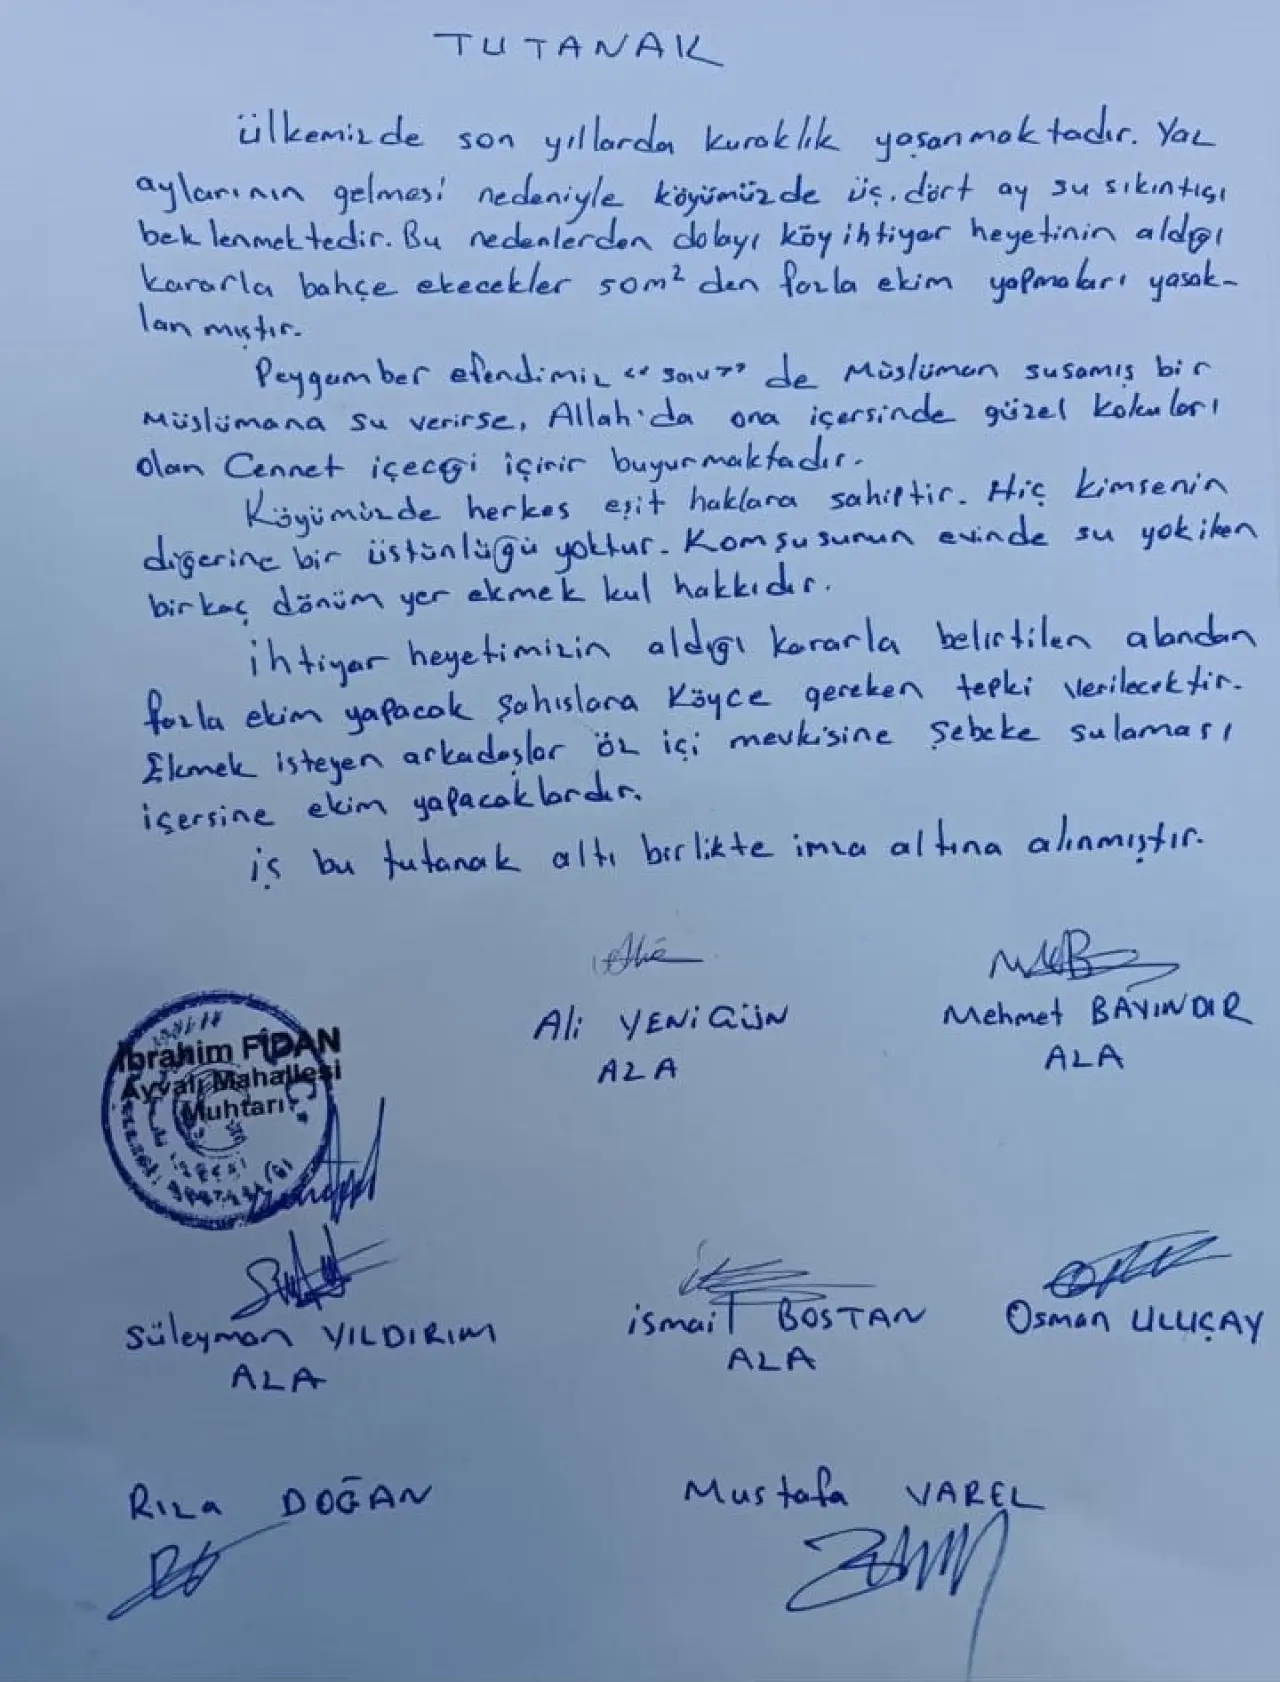 TUTANAK
ülkemizde son yıllarda kuraklık yaşanmaktadır. Yaz
aylarının gelmesi nedeniyle köyümüzde üç.dört ay su sıkıntısı
beklenmektedir. Bu nedenlerden dolayı köy ihtiyar heyetinin aldığı
kararla bahçe ekecekler 50m² den fazla ekim yapmaları yasak-
lanmıştır.
Peygamber efendimiz "sav" de Müslüman susamış bir
Müslümana su verirse, Allah'da ona içersinde güzel kokuları
olan Cennet içeceği içirir buyurmaktadır.
Köyümüzde herkes eşit haklara sahiptir. Hiç kimsenin
diğerine bir üstünlüğü yoktur. Komşusunun evinde su yokiken
birkaç dönüm yer ekmek kul hakkıdır.
ihtiyar heyetimizin aldığı kararla belirtilen alandan
fazla ekim yapacak şahıslara Köyce gereken tepki verilecektir.
Ekmek isteyen arkadaşlar öz içi mevkisine Şebeke sulaması
içersine ekim yapacaklardır.
iş bu tutanak altı birlikte imza altına alınmıştır.
Ali YENİGÜN
AZA
Mehmet BAYINDIR
AZA
İbrahim FİDAN
Ayvalı Mahallesi
Muhtarı
Süleyman YILDIRIM
AZA
ismail BOSTAN
AZA
Osman ULUÇAY
Rıza DOĞAN
Mustafa VAREL